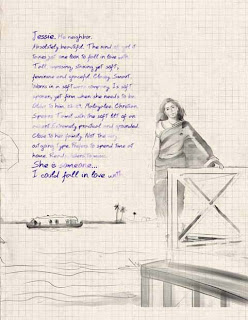 Jessie. His neighbor.
Absolutely beautiful. The kind of girl it
takes just one look to fall in love with.
Tall, womanly, strong yet soft,
feminine and graceful. Classy. Smart.
Works in a software company. Is soft
spoken, yet firm when she needs to be.
Close to him. Malayalee. Christian
Speaks Tamil with the soft lilt of an
accent. Extremely practical and grounded.
Close to her family. Not the very
outgoing type. Prefers to spend time at
home. Reads.
She is someone...
I could fall in love with